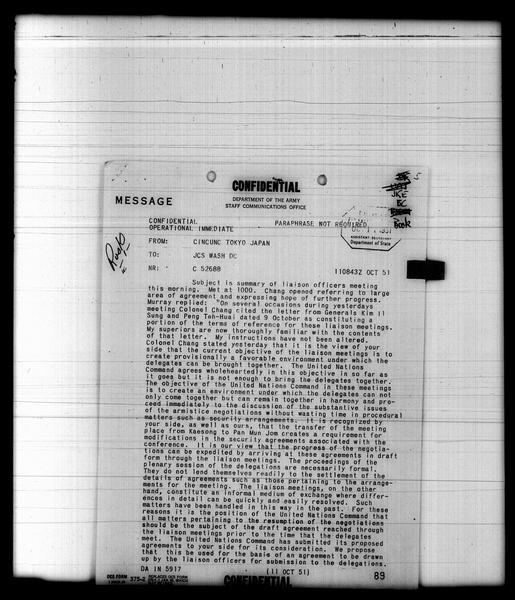 CONFIDENTIAL
DEPARTMENT OF THE ARMY
STAFF COMMUNICATIONS OFFICE
MESSAGE
5
JKE
EC
Book
CONFIDENTIAL
OPERATIONAL IMMEDIATE
PARAPHRASE NOT REQUIRED
Department of State
FROM: CINCUNC TOKYO JAPAN
TO: JCS WASH DC
NR: C 52688
110843Z OCT 51
Subject is summary of liaison officers meeting
this morning. Met at 1000. Chang opened referring to large
area of agreement and expressing hope of further progress.
Murray replied: "On several occasions during yesterdays
meeting Colonel Chang cited the letter from Generals Kim Il
Sung and Peng Teh-Huai dated 9 October as constituting a
portion of the terms of reference for these liaison meetings.
My superiors are now thoroughly familiar with the contents
of that letter. My instructions have not been altered.
Colonel Chang stated yesterday that it is the view of your
side that the current objective of the liaison meetings is to
create provisionally a favorable environment under which the
delegates can be brought together. The United Nations
Command agrees wholeheartedly in this objective in so far as
it goes but it is not enough to bring the delegates together.
The objective of the United Nations Command in these meetings
is to create an environment under which the delegates can not
only come together but can remain together in harmony and pro-
ceed immediately to the discussion of the substantive issues
of the armistice negotiations without wasting time in procedural
matters such as security arrangements. It is recognized by
your side, as well as ours, that the transfer of the meeting
place from Kaesong to Pan Mun Jom creates a requirement for
modifications in the security agreements associated with the
conference. It is our view that the progress of the negotia-
tions can be expedited by arriving at these agreements in draft
form through the liaison meetings. The proceedings of the
plenary session of the delegations are necessarily formal.
They do not lend themselves readily to the settlement of the
details of agreements such as those pertaining to the arrange-
ments for the meeting. The liaison meetings, on the other
hand, constitute an informal medium of exchange where differ-
ences in detail can be quickly and easily resolved. Such
matters have been handled in this way in the past. For these
reasons it is the position of the United Nations Command that
all matters pertaining to the resumption of the negotiations
should be the subject of the draft agreement reached through
the liaison meetings prior to the time that the delegates
meet. The United Nations Command has submitted its proposed
agreements to your side for its consideration. We propose
that this be used for the basis of an agreement to be drawn
up by the liaison officers for submission to the delegations.
DA IN 5917
(11 OCT 51)
DCS FORM 375-2
89
CONFIDENTIAL